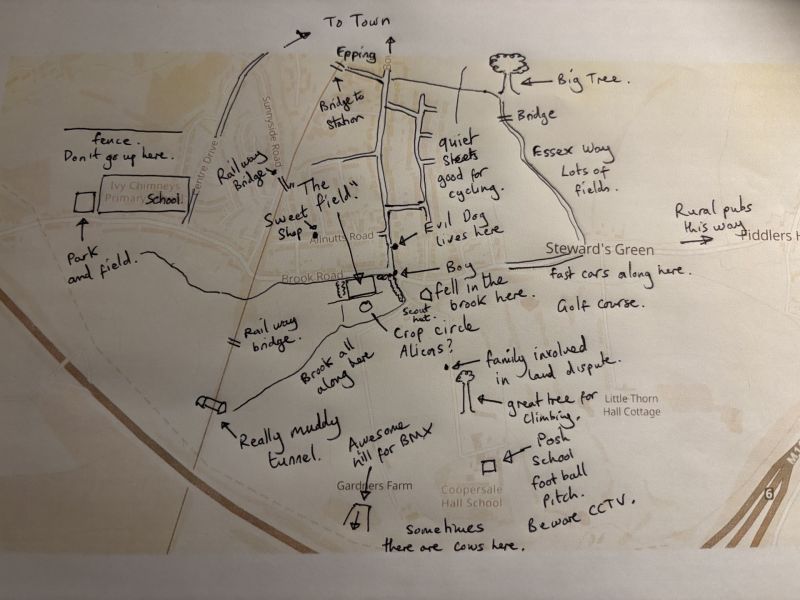 To Town
Epping
Big Tree.
Bridge to
Station
Bridge
Sunnyside Road
fence.
Don't go up here.
Essex Way
Lots of
fields.
quiet
streets
good for
cycling.
Centre Drive
Railway
Bridge
Ivy Chimneys
Primary School.
The
Sweet field."
Shop
Rural pubs
this way
Evil Dog
lives here
Allnutts Road
Piddlers H
Steward's Green
Park
and field.
Brook Road
Boy
fell in the
brook here.
fast cars along here.
Golf course.
Scout
hut.
Crop circle
Railway
bridge.
Brook all
along here
family involved
in land dispute.
great tree for
climbing.
Little Thorn
Hall Cottage
Really muddy
tunnel.
Awesome
hill for BMX
Posh
school
football
pitch.
Beware CCTV.
Gardners Farm
Coopersale
Hall School
6
M1
Sometimes
there are cows here.